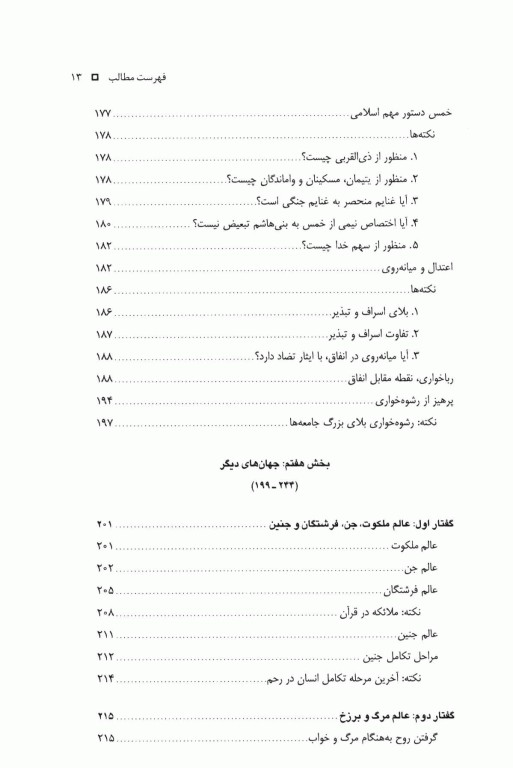 فهرست مطالب □ ۱۳
خمس دستور مهم اسلامی ۱۷۷
نکته‌ها ۱۷۸
۱. منظور از ذی‌القربی چیست؟ ۱۷۸
۲. منظور از یتیمان، مسکینان و واماندگان چیست؟ ۱۷۸
۳. آیا غنایم منحصر به غنایم جنگی است؟ ۱۷۹
۴. آیا اختصاص نیمی از خمس به بنی‌هاشم تبعیض نیست؟ ۱۸۰
۵. منظور از سهم خدا چیست؟ ۱۸۲
اعتدال و میانه‌روی ۱۸۲
نکته‌ها ۱۸۶
۱. بلای اسراف و تبذیر ۱۸۶
۲. تفاوت اسراف و تبذیر ۱۸۷
۳. آیا میانه‌روی در انفاق، با ایثار تضاد دارد؟ ۱۸۸
رباخواری، نقطه مقابل انفاق ۱۸۸
پرهیز از رشوه‌خواری ۱۹۴
نکته: رشوه‌خواری بلای بزرگ جامعه‌ها ۱۹۷
بخش هفتم: جهان‌های دیگر
(۱۹۹ - ۲۴۴)
گفتار اول: عالم ملکوت، جن، فرشتگان و جنین ۲۰۱
عالم ملکوت ۲۰۱
عالم جن ۲۰۲
عالم فرشتگان ۲۰۵
نکته: ملائکه در قرآن ۲۰۸
عالم جنین ۲۱۱
مراحل تکامل جنین ۲۱۲
نکته: آخرین مرحله تکامل انسان در رحم ۲۱۴
گفتار دوم: عالم مرگ و برزخ ۲۱۵
گرفتن روح به‌هنگام مرگ و خواب ۲۱۵